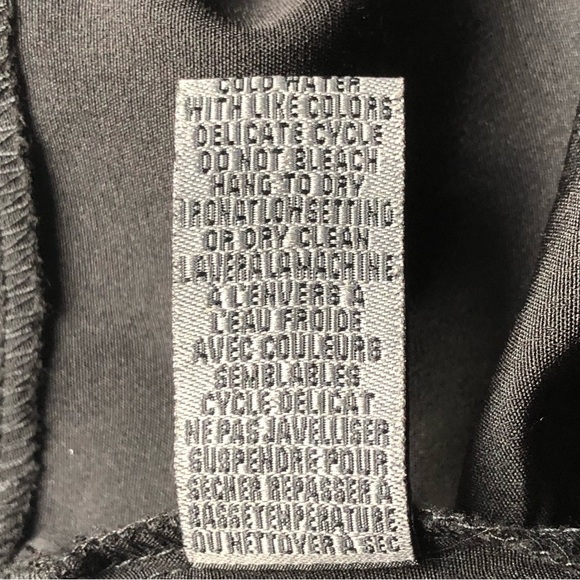 COLD WATER
WITH LIKE COLORS
DELICATE CYCLE
DO NOT BLEACH
HANG TO DRY
IRON AT LOW SETTING
OR DRY CLEAN
LAVER A LA MACHINE
A L'ENVERS À
L'EAU FROIDE
AVEC COULEURS
SEMBLABLES
CYCLE DELICAT
NE PAS JAVELLISER
SUSPENDRE POUR
SECHER REPASSER À
BASSE TEMPÉRATURE
OU NETTOYER A SEC